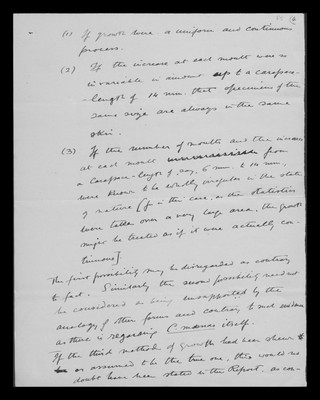 (1) If growth were a uniform and continuous
process.
(2) If the increase at each moult were so
invariable in amount up to a carapace-
-length of 14 mm. that specimens of the
same size are always in the same
skin.
(3) If the number of moults and the increase
at each moult from
a carapace-length of, say, 6 mm. to 14 mm.
were known to be wholly irregular in the state
of nature [for in this case, as the statistics
were taken over a very large area, the growth
might be treated as if it were actually con-
tinuous].
The first possibility may be disregarded as contrary
to fact. Similarly the second possibility need not
be considered as being unsupported by the
analogy of other forms and contrary to
as there is regarding C. maenas itself.
If the third method of growth had been shewn
or assumed to be the true one, this would no
doubt have been stated in the Report, as con-